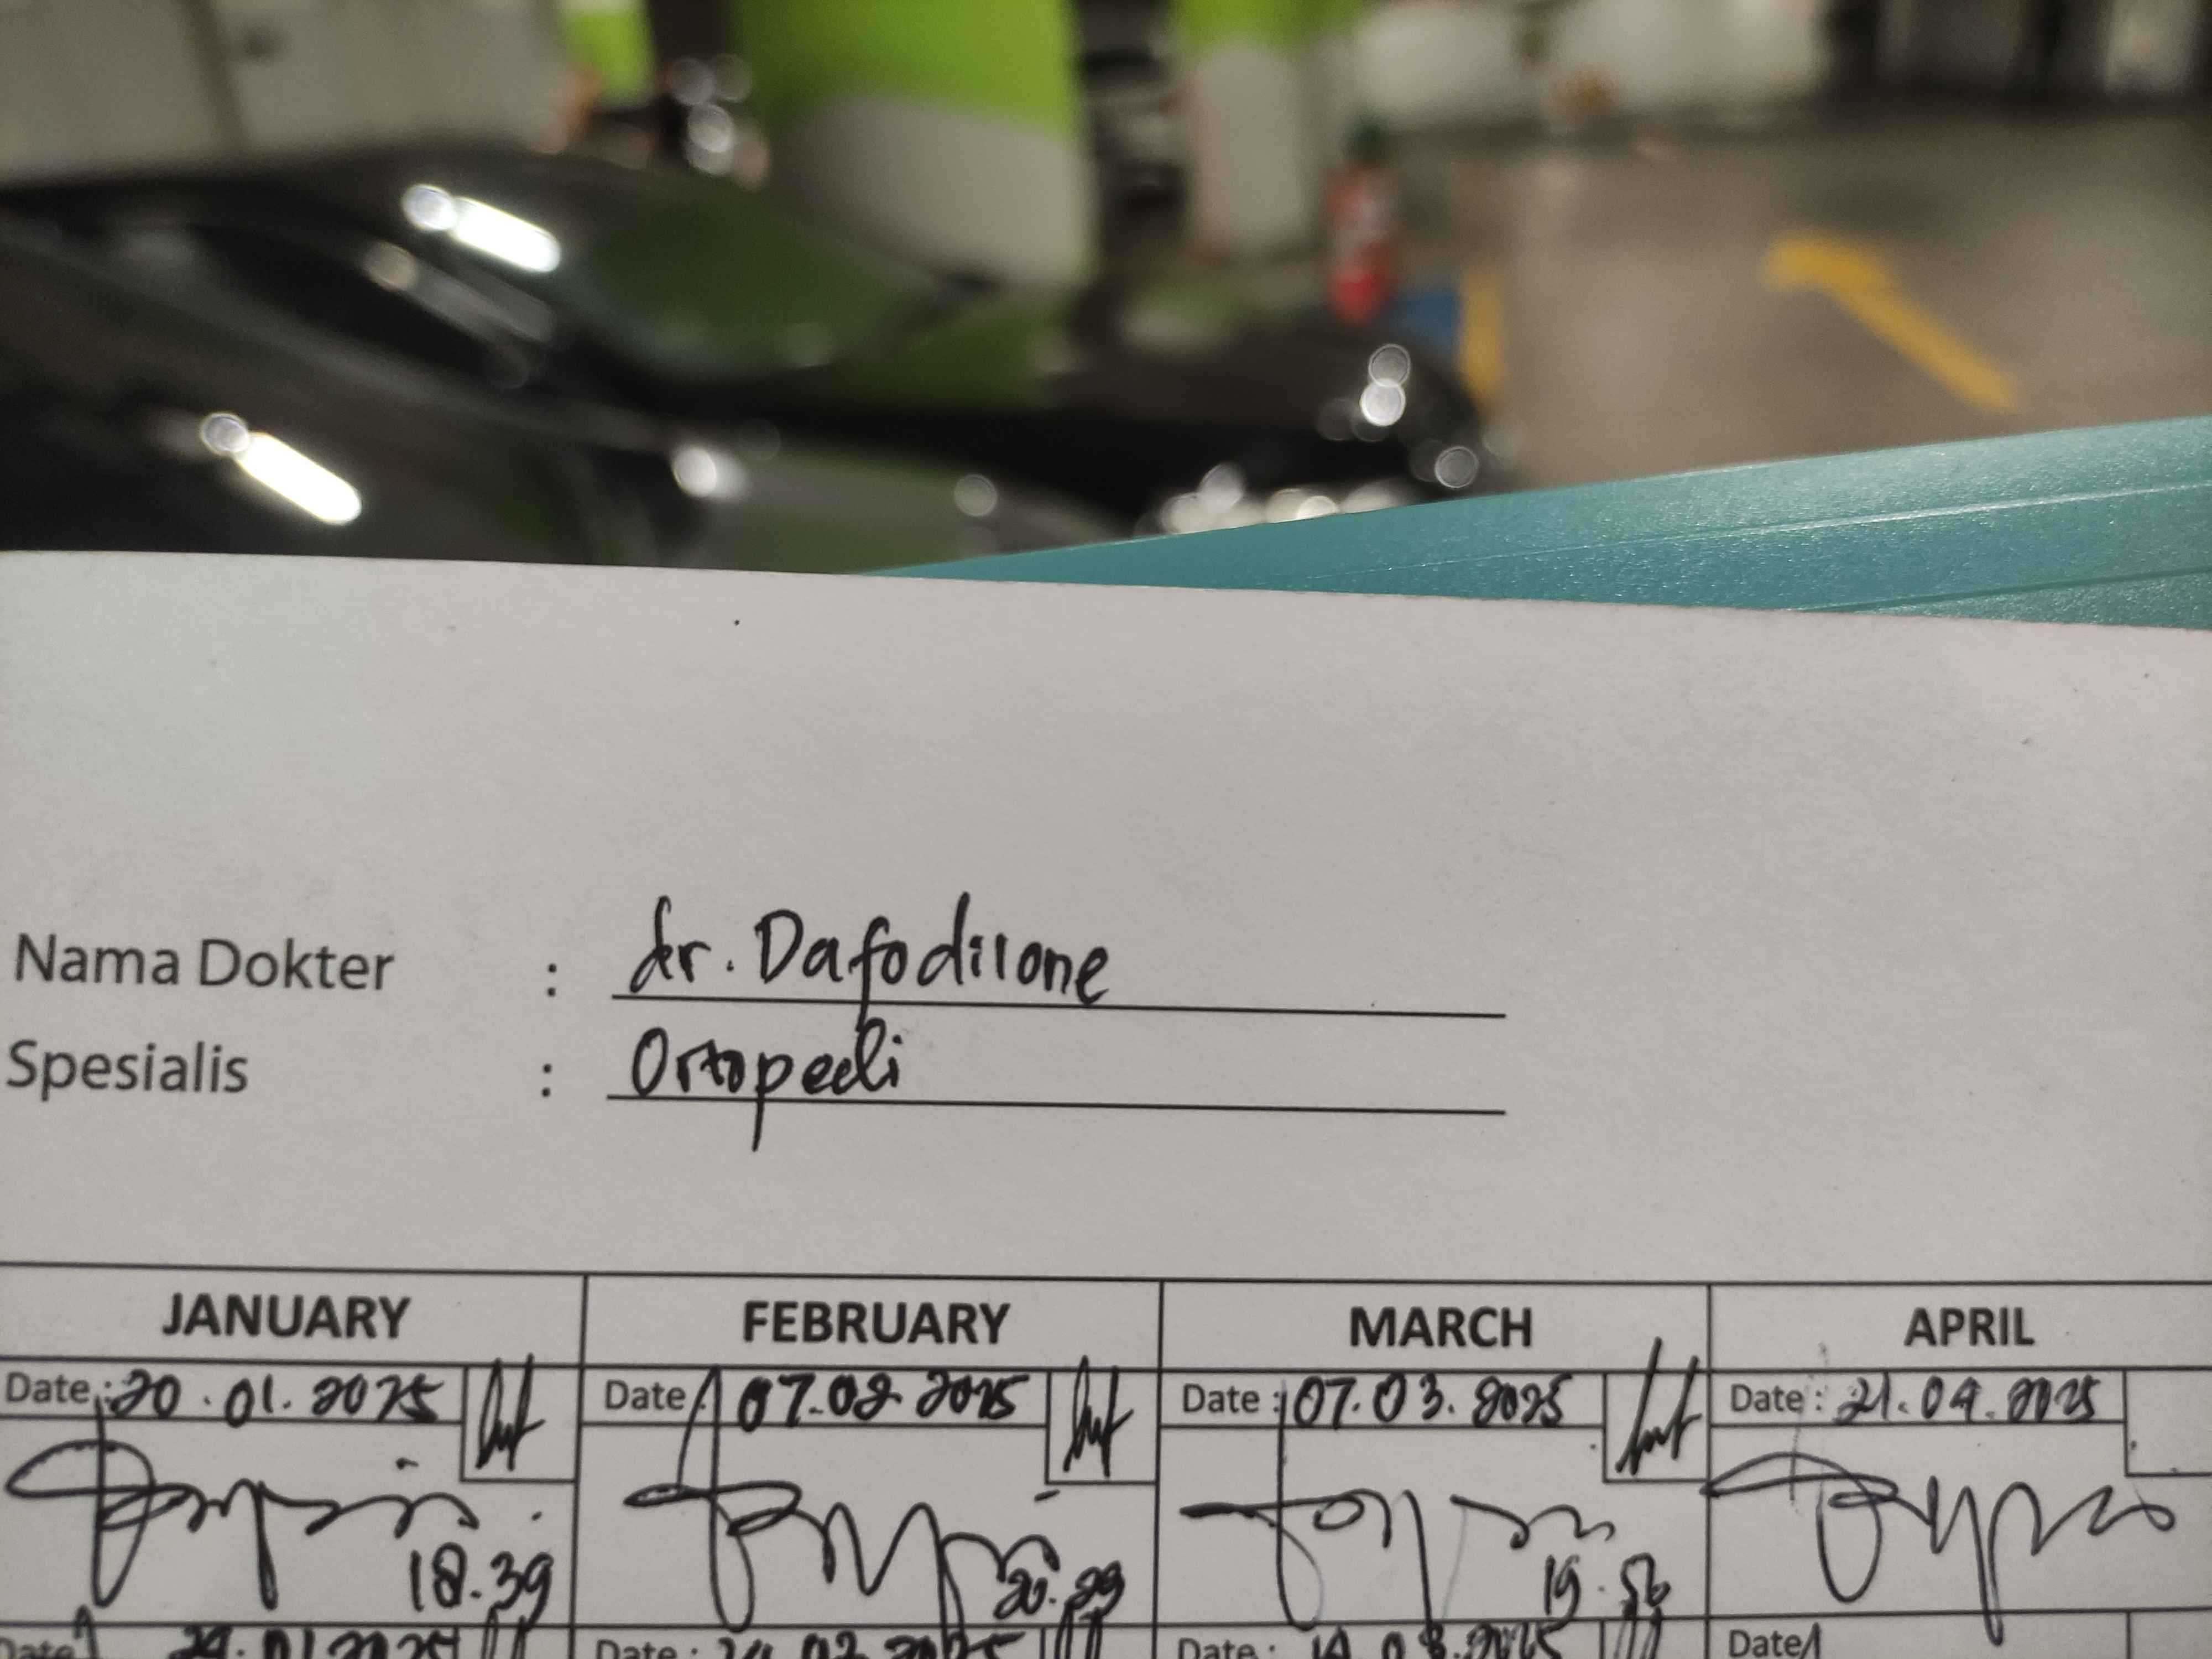 Nama Dokter : dr. Dafodilone
Spesialis : Ortopedi
JANUARY FEBRUARY MARCH APRIL
Date : 20.01.2025 Date : 07.02.2025 Date : 07.03.2025 Date : 21.04.2025
18.39 20.29 19.56
Date Date : Date : Date